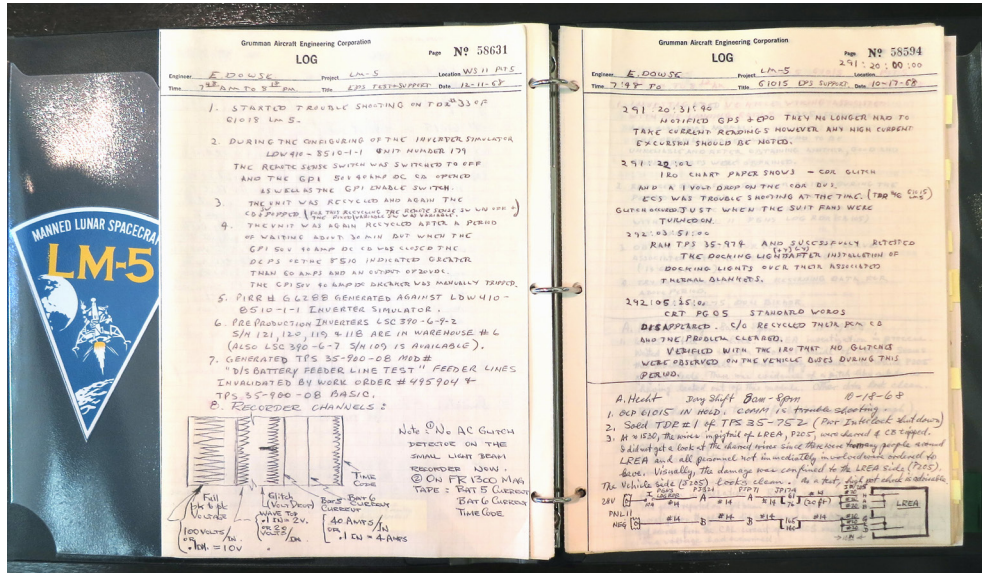 MANNED LUNAR SPACECRA
LM-5
Grumman Aircraft Engineering Corporation
LOG
Page Nº 58631
Engineer E. DOWSE Project LM-5 Location WS 11 PT 5
Time 7 AM TO 8 PM Title EPS TEST+SUPPORT Date 12-11-68
1. STARTED TROUBLE SHOOTING ON TDR#33 OF
61018 LM 5.
2. DURING THE CONFIGURING OF THE INVERTER SIMULATOR
LDW410-8510-1-1 UNIT NUMBER 179
THE REMOTE SENSE SWITCH WAS SWITCHED TO OFF
AND THE GPI 50V 40 AMP DC CB OPENED
AS WELL AS THE GPI ENABLE SWITCH.
3. THE UNIT WAS RECYCLED AND AGAIN THE
CB POPPED (FOR THIS RECYCLING THE REMOTE SENSE SW WN OFF &
THE FIXED/VARIABLE SW WAS VARIABLE.)
4. THE UNIT WAS AGAIN RECYCLED AFTER A PERIOD
OF WAITING ABOUT 30 MIN BUT WHEN THE
GPI 50V 40 AMP DC CB WAS CLOSED THE
DCPS OF THE 8510 INDICATED GREATER
THAN 60 AMPS AND AN OUTPUT OF 20VDC.
THE GPI 50V 40 AMP DC BREAKER WAS MANUALLY TRIPPED.
5. PIRR # G6288 GENERATED AGAINST LDW410-
8510-1-1 INVERTER SIMULATOR.
6. PRE PRODUCTION INVERTERS LSC 390-6-9-2
S/N 121, 120, 119 & 118 ARE IN WAREHOUSE #6
(ALSO LSC 390-6-7 S/N 109 IS AVAILABLE).
7. GENERATED TPS 35-900-08 MOD#
"D/S BATTERY FEEDER LINE TEST" FEEDER LINES
INVALIDATED BY WORK ORDER #495904 &
TPS 35-900-08 BASIC.
8. RECORDER CHANNELS:
Note: ① No AC GLITCH
DETECTOR ON THE
SMALL LIGHT BEAM
RECORDER NOW.
② ON FR 1300 MAG
TAPE: BAT 5 CURRENT
BAT 6 CURRENT
TIME CODE
TIME
CODE
Full
pk to pk
VOLTAGE
100 VOLTS/IN.
OR
.1 IN. = 10V
Glitch
(Volt Drop)
WAVE TOP
.1 IN = 2V.
OR 20
VOLTS/IN.
Bat 5
CURRENT
Bat 6
CURRENT
40 AMPS/IN
OR
.1 IN = 4 AMPS
Grumman Aircraft Engineering Corporation
LOG
Page Nº 58594
291:20:00:00
Engineer E. DOWSE Project LM-5 Location
Time 7:48 TO Title 61015 EPS SUPPORT Date 10-17-68
291:20:31:40
NOTIFIED GPS + EPO THEY NO LONGER HAD TO
TAKE CURRENT READINGS HOWEVER ANY HIGH CURRENT
EXCURSION SHOULD BE NOTED.
291:22:02
IRO CHART PAPER SHOWS - CDR GLITCH
AND A 1 VOLT DROP ON THE CDR BUS.
ECS WAS TROUBLE SHOOTING AT THE TIME. (TDR 61015)
GLITCH OCCURRED JUST WHEN THE SUIT FANS WERE
TURNED ON.
292:03:51:00
RAN TPS 35-974 AND SUCCESSFULLY RETESTED
THE DOCKING LIGHT AFTER INSTALLATION OF
DOCKING LIGHTS OVER THEIR ASSOCIATED
THERMAL BLANKETS.
292:05:25:00
CRT PG 05 STANDARD WORDS
DISAPPEARED. C/O RECYCLED THEIR PCM CB
AND THE PROBLEM CLEARED.
VERIFIED WITH THE IRO THAT NO GLITCHES
WERE OBSERVED ON THE VEHICLE BUSES DURING THIS
PERIOD.
A. Hecht Day Shift 8am-8pm 10-18-68
1. OCP 61015 IN HOLD. COMM is trouble shooting
2. Sold TDR #1 of TPS 35-752 (Pwr Interlock shut down)
3. At ≈1530, the wires in pigtail of LREA, P205, were shorted & CB tripped.
I did not get a look at the shorted wires since there were too many people around
LREA and all personnel not immediately involved were ordered to
leave. Visually, the damage was confined to the LREA side (P205).
The vehicle side (J205) looks clean. As a test, high pot check is advisable
28V
PNL 11
NEG
#14
A
#14
(20 ft)
#14
B
#14
B
#14
#14
LREA